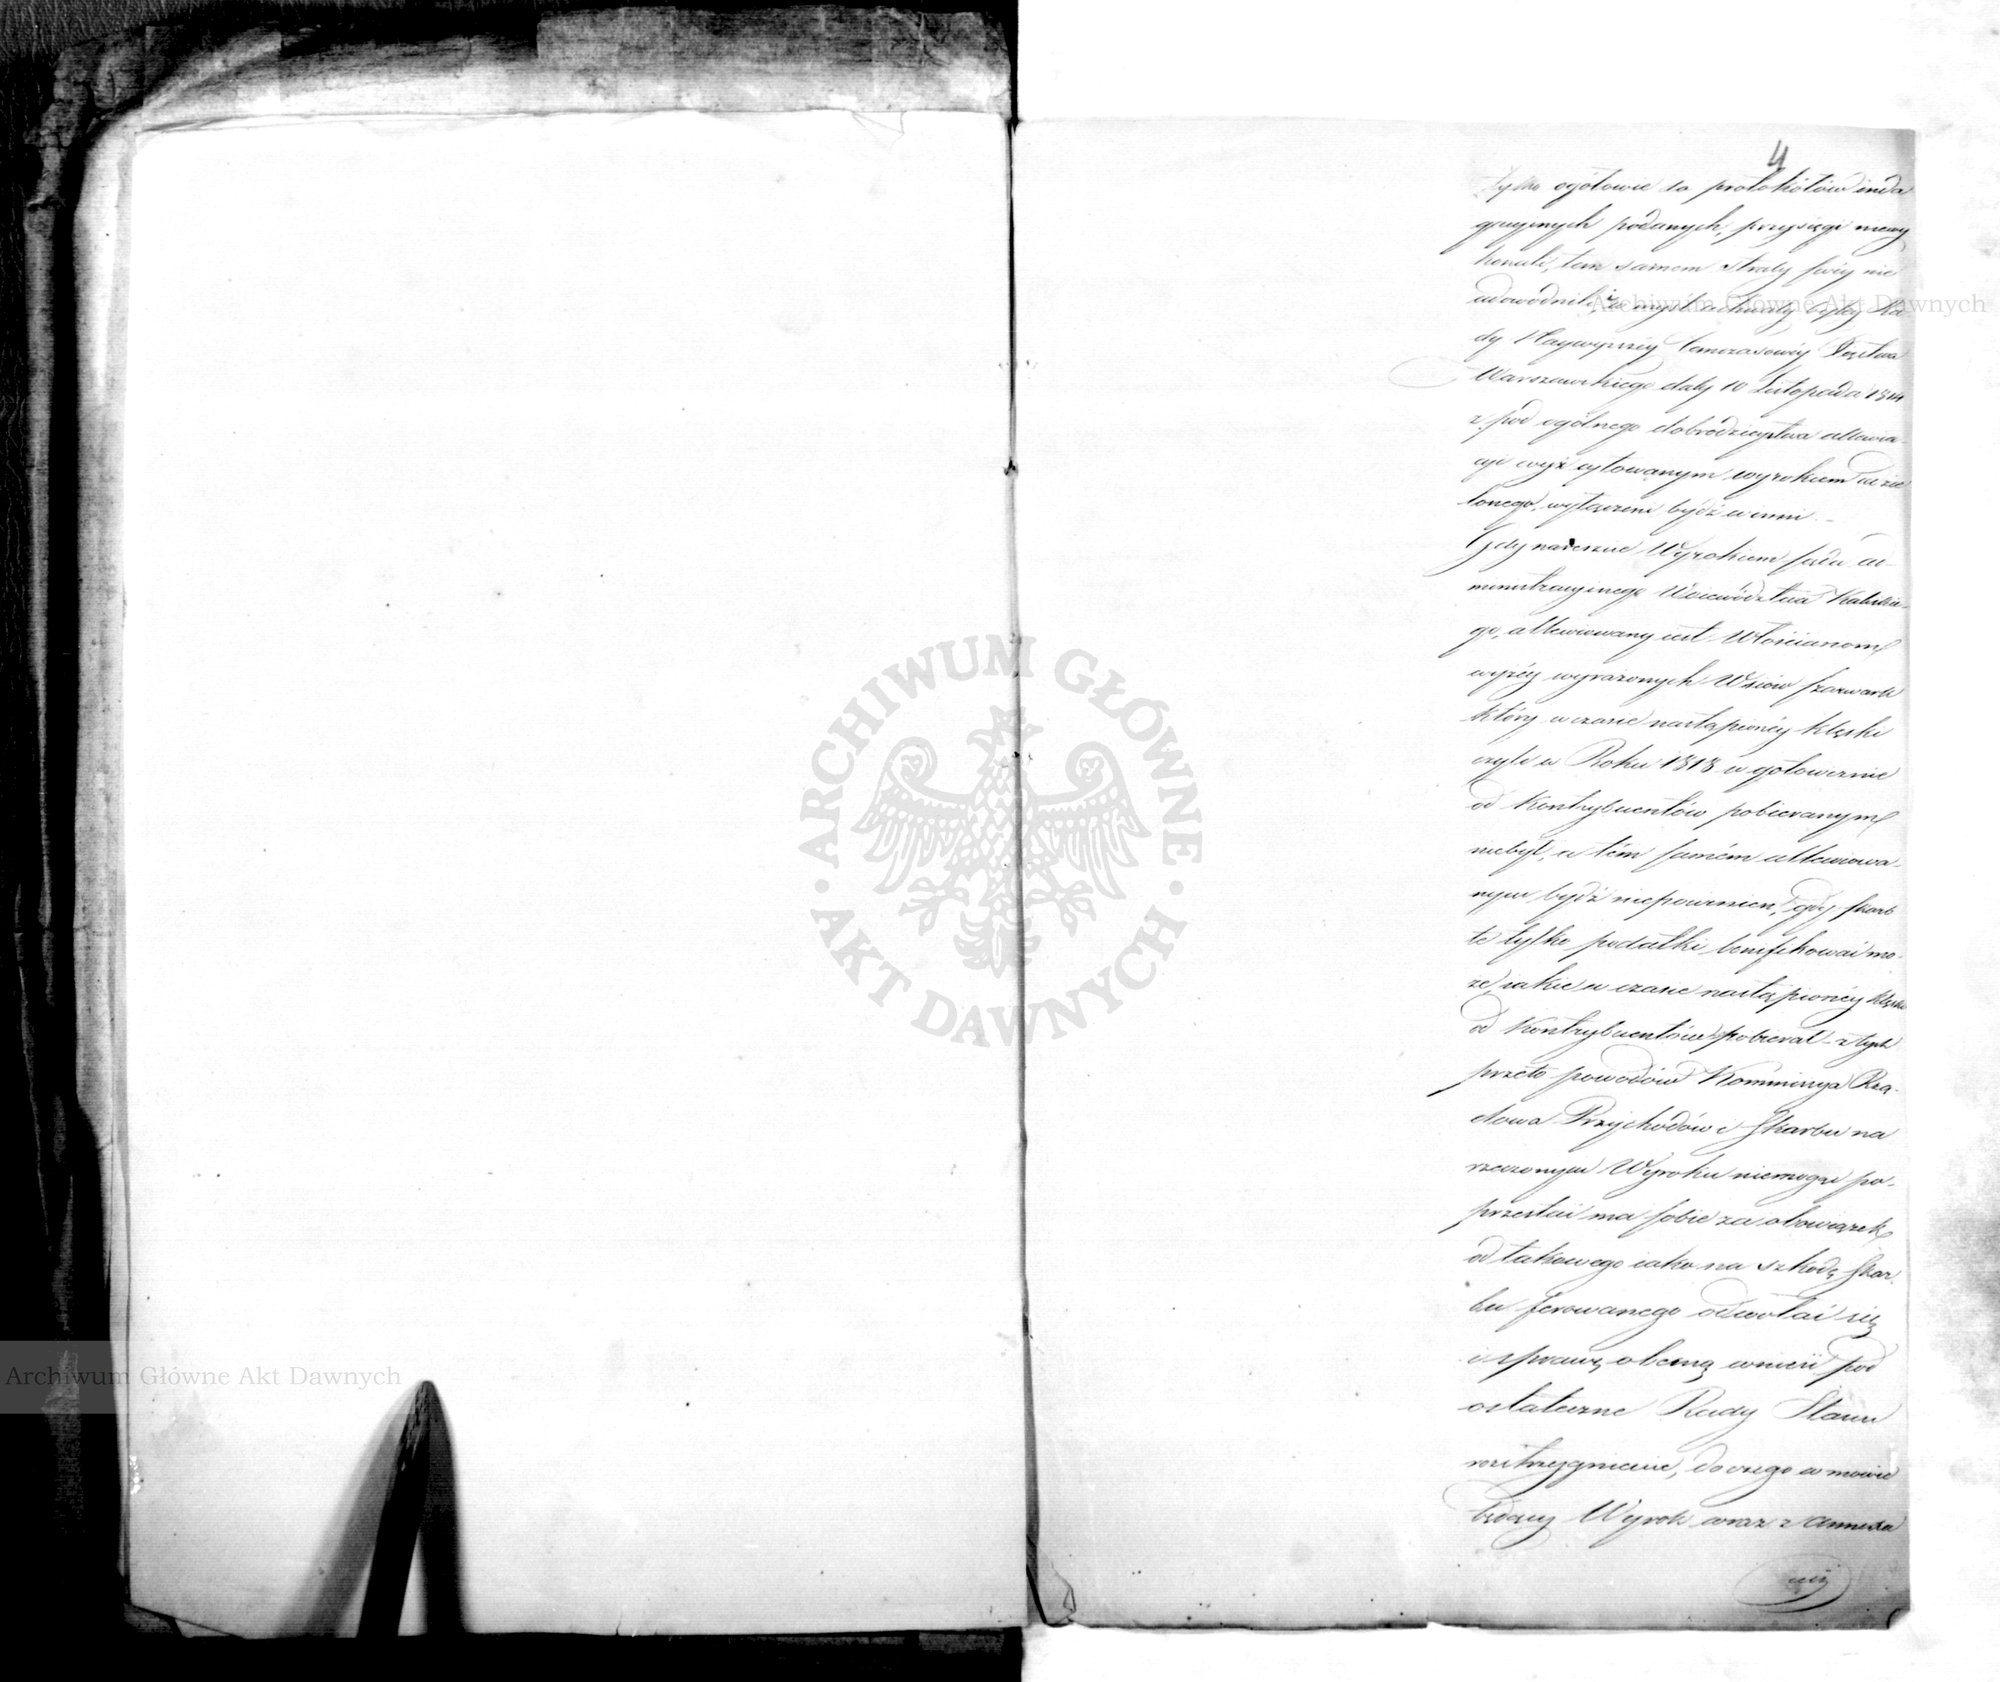 4
tylko ogółowie do protokółów inda
gacyjnych podanych, przysięgi niewy
konali, tem samem straty swéy nie
udowodnili, w myśl uchwały byłey Ra-
dy Naywyższéy Tymczasowéy Xięstwa
Warszawskiego daty 10 Listopada 1814
z pod ogólnego dobrodzieystwa allewia-
cyi wyż cytowanym wyrokiem udzie
lonego, wyłączeni bydź winni.—
Gdy nareszcie Wyrokiem Sądu ad-
ministracyinego Woiewództwa Kaliskie-
go, allewiowany iest Włościanom
wyżéy wyrażonych Wsiów szarwark
który w czasie nastąpionéy klęski
czyli w Roku 1813 w gotowiznie
od Kontrybuentów pobieranym
niebył, a tém samém allewiowa-
nym bydź niepowinien, gdy Skarb
te tylko podatki bonifikować mo-
że, iakie w czasie nastąpionéy klęski
od Kontrybuentów pobierał – z tych
przeto powodów Kommissya Rzą-
dowa Przychodów i Skarbu na
rzeczonym Wyroku niemogąc po-
przestać ma sobie za obowiązek
od takowego iako na szkodę Skar-
bu ferowanego odwołać się
i sprawę obecną wnieść pod
ostateczne Rady Stanu
rozstrzygnienie, do czego w mowie
będący Wyrok wraz z annexa
Archiwum Główne Akt Dawnych
ARCHIWUM GŁÓWNE AKT DAWNYCH
Archiwum Główne Akt Dawnych